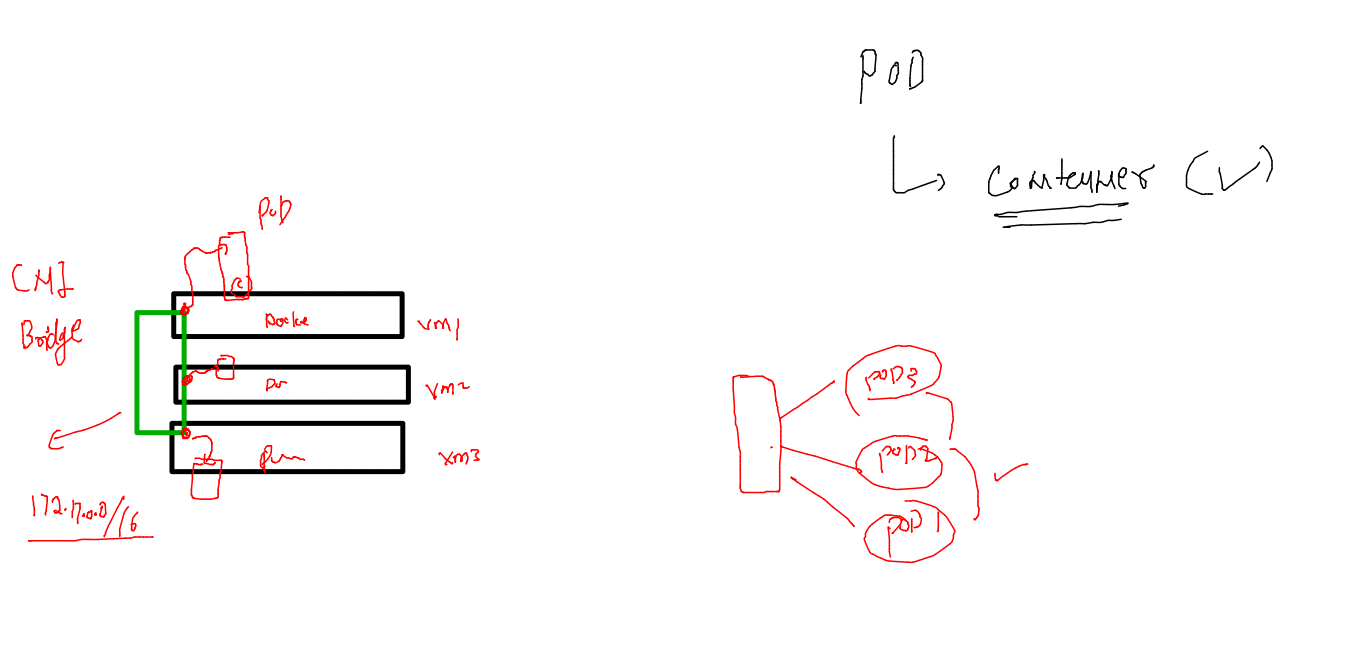 POD
Conteyner (✓)
POD
CNI
Bridge
Docke
vm1
vm2
vm3
172.17.0.0/16
POD3
POD2
POD1